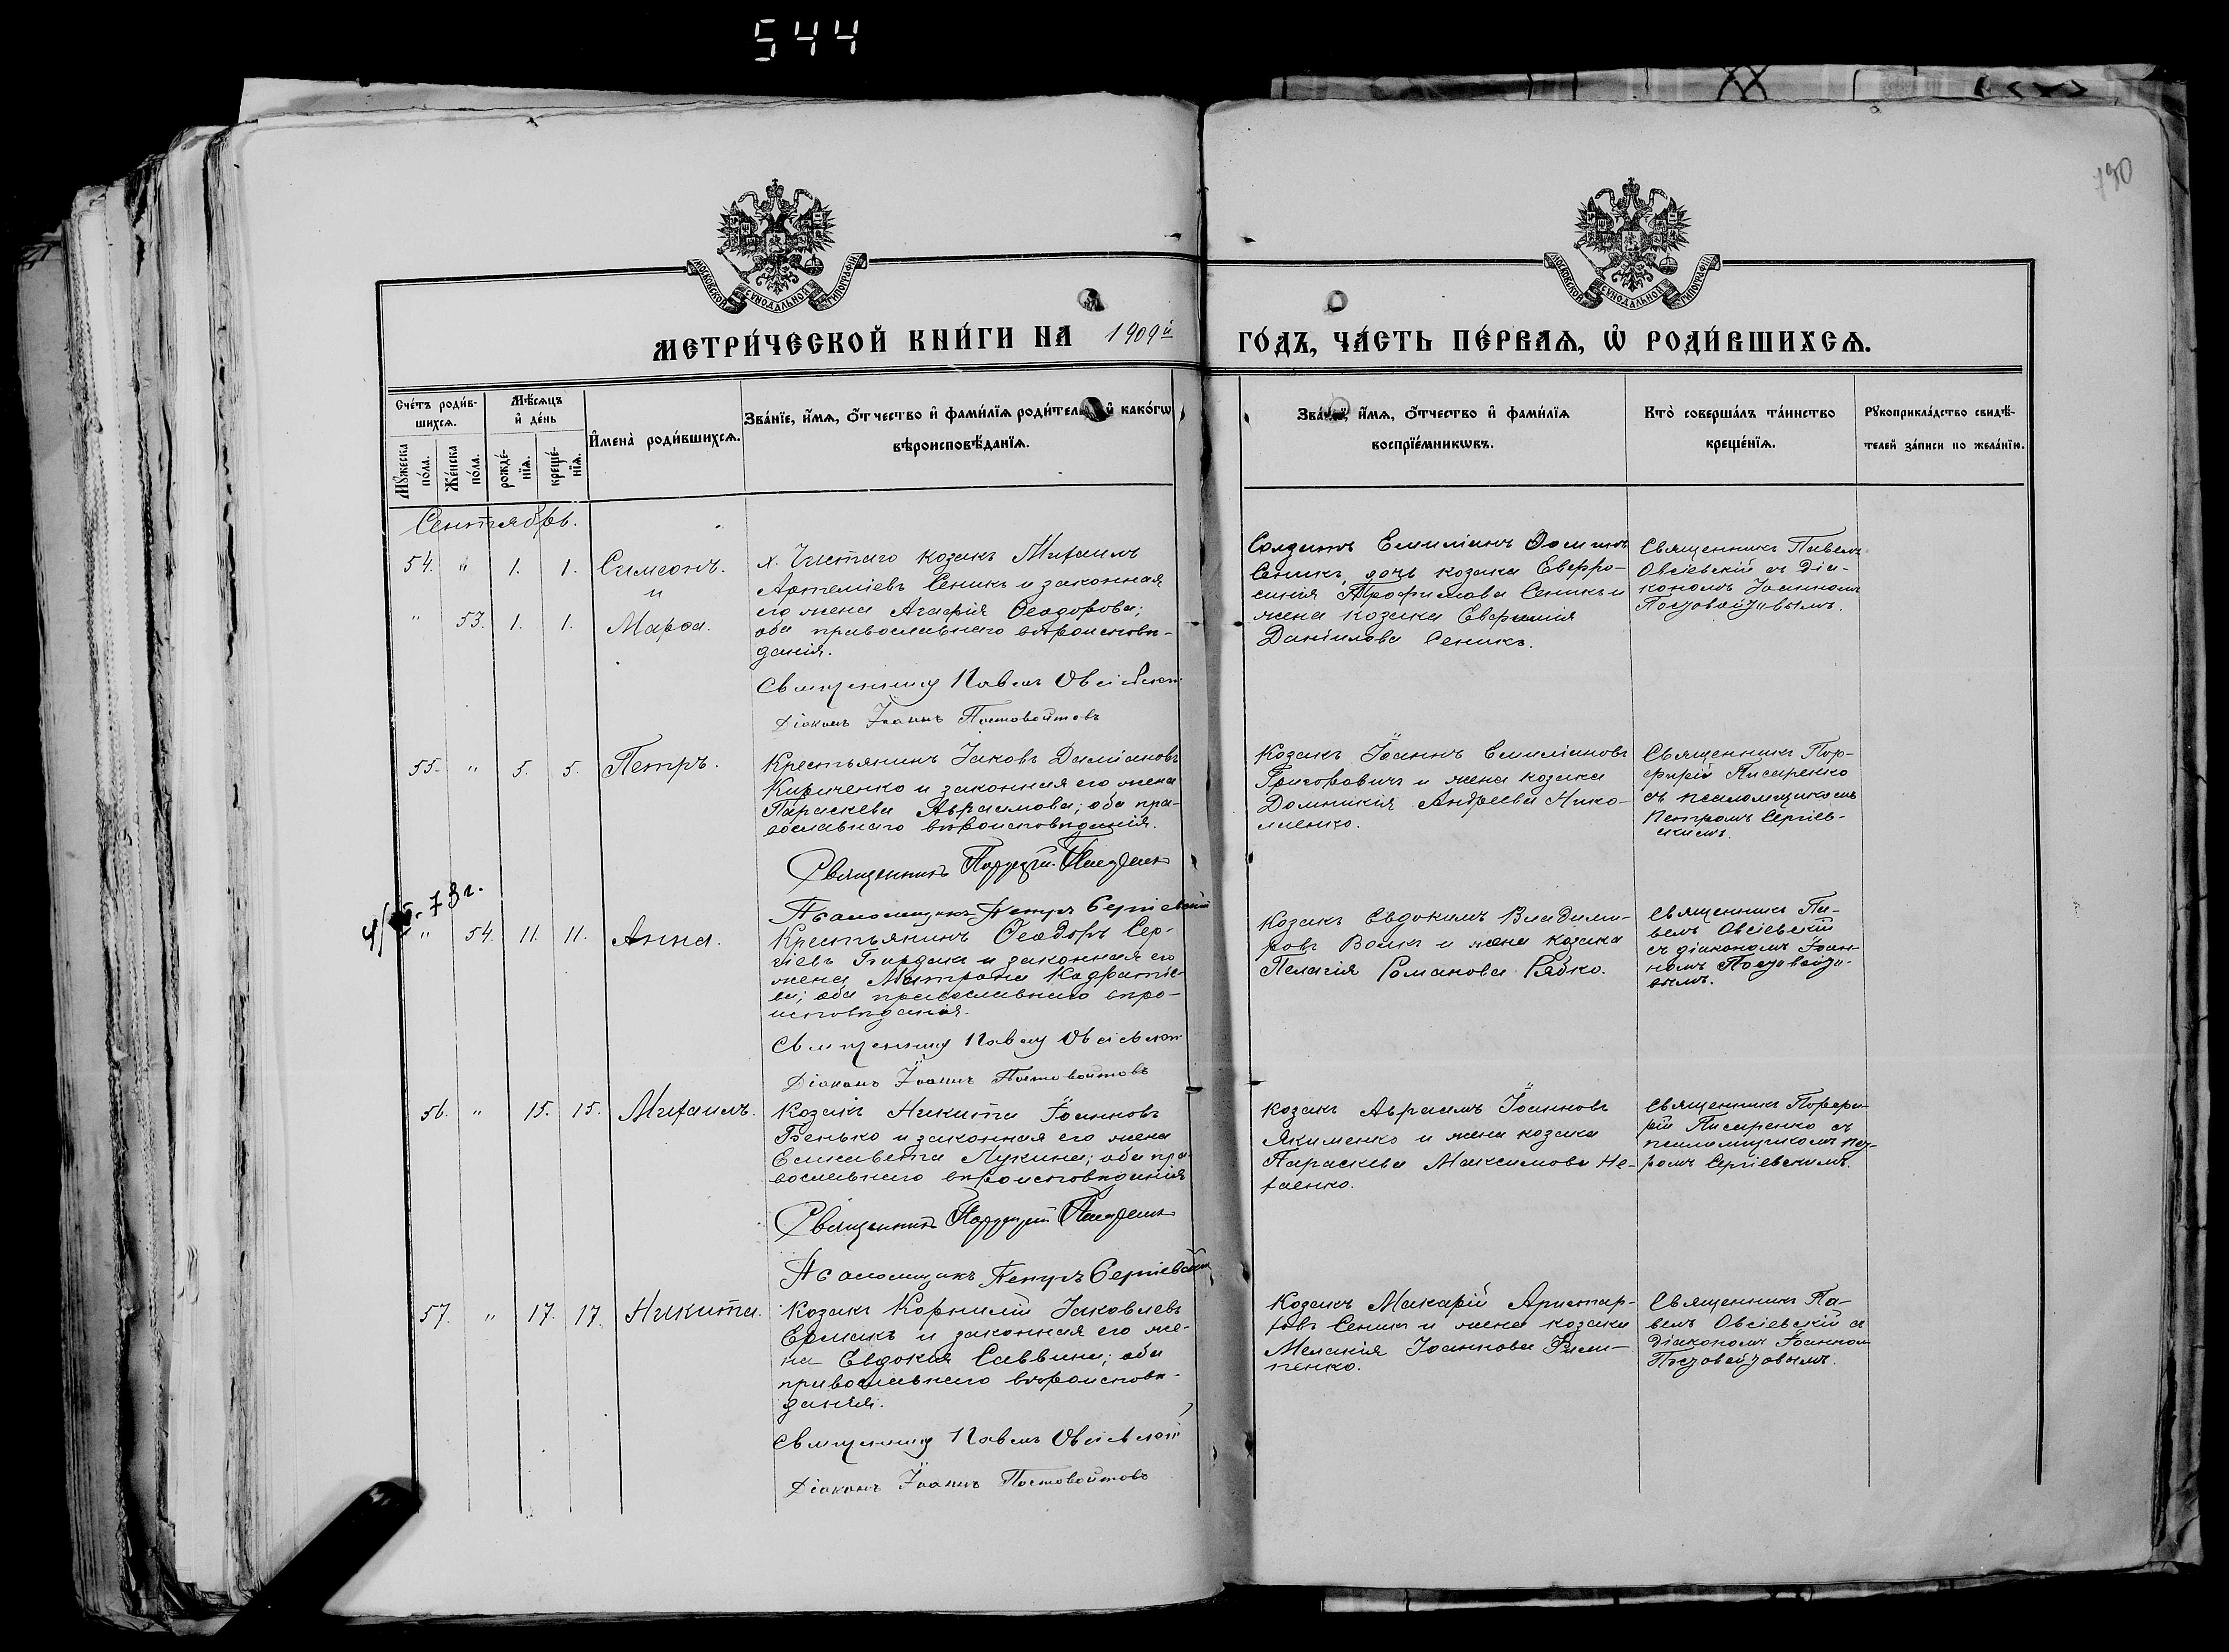 544
190
МОСКОВСКОЙ СУНОДАЛЬНОЙ ТИПОГРАФІИ
МОСКОВСКОЙ СУНОДАЛЬНОЙ ТИПОГРАФІИ
МЕТРИ́ЧЕСКОЙ КНИ́ГИ НА 1909й ГО́ДЪ, ЧА́СТЬ ПЕ́РВАѦ, Ѡ҆ РОДИ́ВШИХСѦ.
Сче́тъ роди́в-
шихсѧ.
Мꙋжеска по́ла.
Же́нска по́ла.
Мѣ́сѧцъ
и҆ де́нь
рожде́-
нїѧ.
креще́-
нїѧ.
И҆мена̀ роди́вшихсѧ.
Зва́нїе, и҆́мѧ, ѻ҆́тчество и҆ фами́лїѧ роди́теле и҆ како́гѡ
вѣроисповѣ́данїѧ.
Зва́нїе, и҆́мѧ, ѻ҆́тчество и҆ фами́лїѧ
воспрїе́мникѡвъ.
Кто̀ соверша́лъ та́инство
креще́нїѧ.
Рꙋкоприкла́дство свидѣ́-
телей за́писи по жела́нїю.
Сентябрь.
54. " 1. 1. Симеонъ.
и
" 53. 1. 1. Марѳа.
х. Чистаго козакъ Михаилъ
Артеміевъ Сеникъ и законная
его жена Агафія Ѳеодорова;
оба православнаго вѣроисповѣ-
данія.
Священникъ Павелъ Овсіевскій
Діаконъ Іоаннъ Постовойтовъ
Солдатъ Емиліанъ
Сеникъ, дочь козака Евфро-
синія Трофимова Сеникъ и
жена козака Евфимія
Даніилова Сеникъ.
Священникъ Павелъ
Овсіевскій съ діа-
кономъ Іоанномъ
Постовойтовымъ.
55. " 5. 5. Петръ.
Крестьянинъ Іаковъ Даміановъ
Кириченко и законная его жена
Параскева Авраамова; оба пра-
вославнаго вѣроисповѣданія.
Священникъ Порфирій Писаренко
Псаломщикъ Петръ Сергіевскій
Козакъ Іоаннъ Емиліановъ
Григоровичъ и жена козака
Домникія Андреева Нико-
лаенко.
Священникъ Пор-
фирій Писаренко
съ псаломщикомъ
Петромъ Сергіев-
скимъ.
73г.
" 54. 11. 11. Анна.
Крестьянинъ Ѳеодоръ Сер-
гіевъ и законная его
жена Матрона Кодратіе-
ва; оба православнаго вѣро-
исповѣданія.
Священникъ Павелъ Овсіевскій
Діаконъ Іоаннъ Постовойтовъ
Козакъ Евдокимъ Владими-
ровъ Волкъ и жена козака
Пелагія Романова Рябко.
Священникъ Па-
велъ Овсіевскій
съ діакономъ Іоан-
номъ Постовойто-
вымъ.
56. " 15. 15. Михаилъ.
Козакъ Никита Іоанновъ
Бенько и законная его жена
Елисавета Лукина; оба пра-
вославнаго вѣроисповѣданія
Священникъ Порфирій Писаренко
Псаломщикъ Петръ Сергіевскій
Козакъ Авраамъ Іоанновъ
Якименко и жена козака
Параскева Максимова Не-
хаенко.
Священникъ Порфи-
рій Писаренко съ
псаломщикомъ Пет-
ромъ Сергіевскимъ.
57. " 17. 17. Никита.
Козакъ Корнилій Іаковлевъ
Ермакъ и законная его же-
на Евдокія Саввина; оба
православнаго вѣроисповѣ-
данія.
Священникъ Павелъ Овсіевскій
Діаконъ Іоаннъ Постовойтовъ
Козакъ Макарій Аристар-
ховъ Сеникъ и жена козака
Меланія Іоаннова Фили-
пенко.
Священникъ Па-
велъ Овсіевскій съ
діакономъ Іоанномъ
Постовойтовымъ.